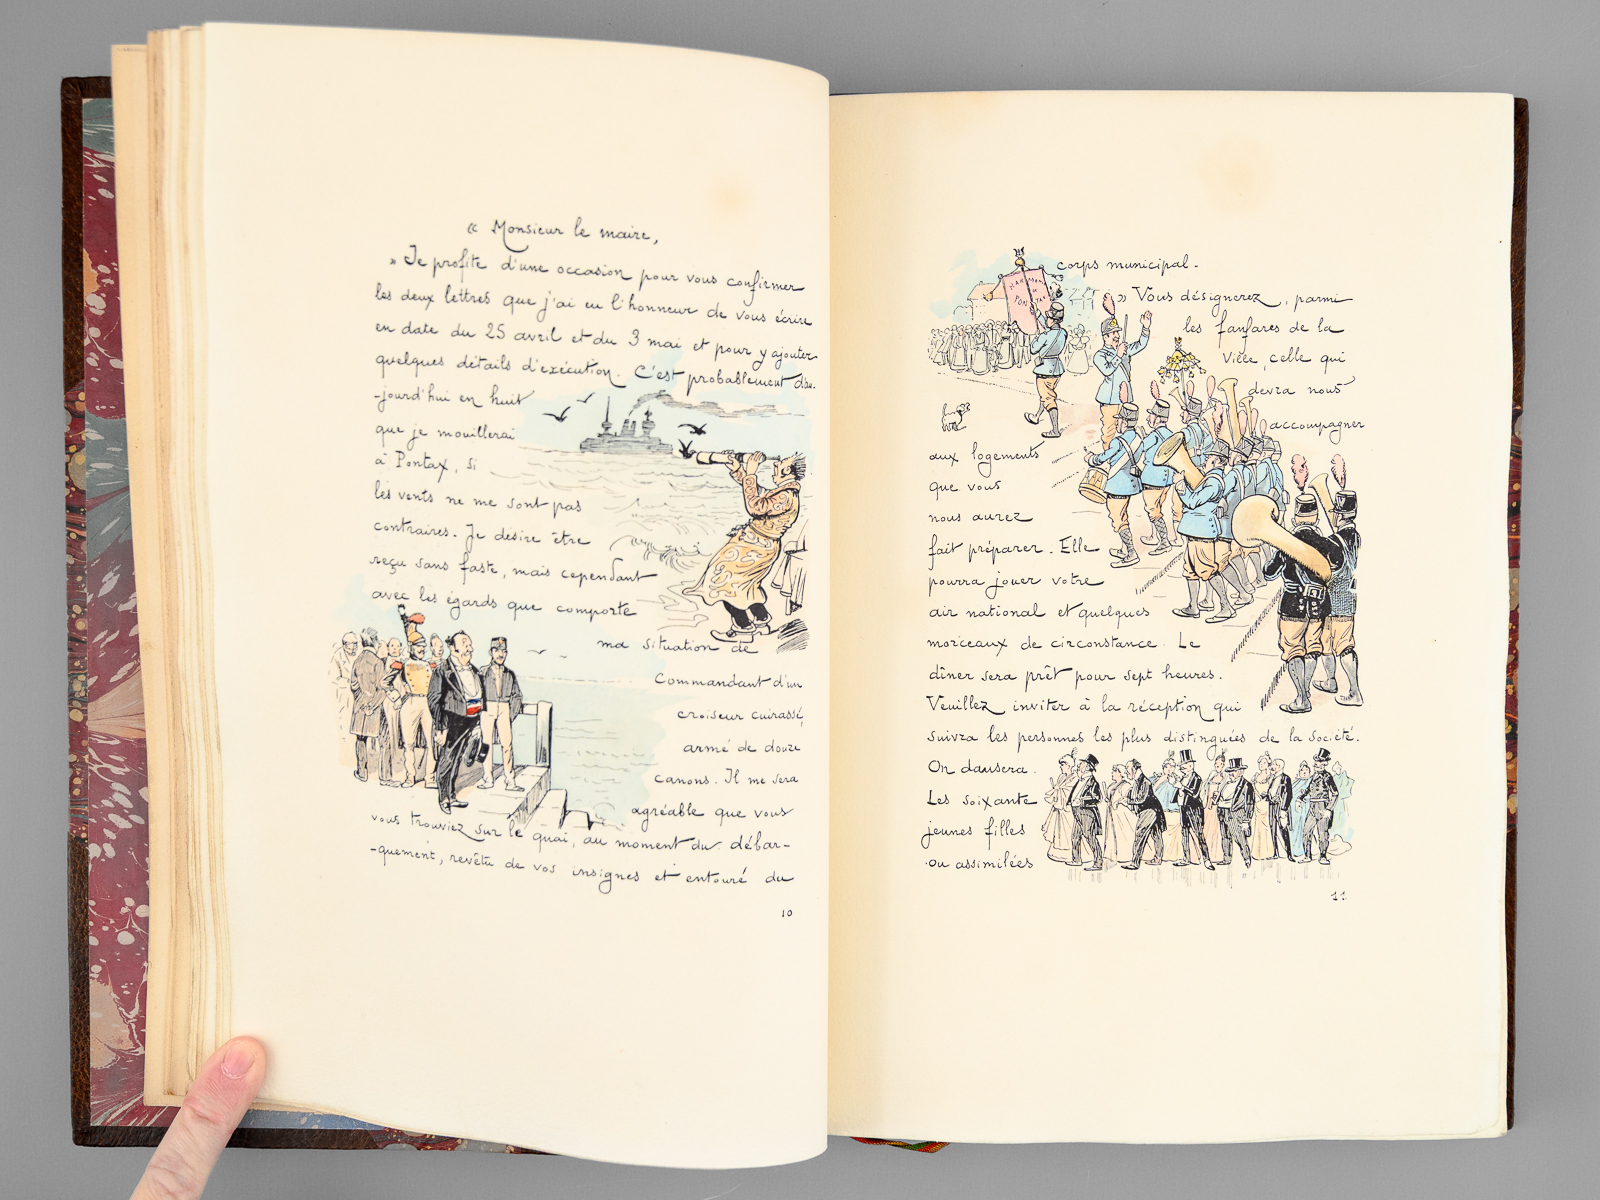 « Monsieur le maire,
» Je profite d'une occasion pour vous confirmer
les deux lettres que j'ai eu l'honneur de vous écrire
en date du 25 avril et du 3 mai et pour y ajouter
quelques détails d'exécution. C'est probablement d'au-
-jourd'hui en huit
que je mouillerai
à Pontax, si
les vents ne me sont pas
contraires. Je désire être
reçu sans faste, mais cependant
avec les égards que comporte
ma situation de
Commandant d'un
croiseur cuirassé,
armé de douze
canons. Il me sera
agréable que vous
vous trouviez sur le quai, au moment du débar-
-quement, revêtu de vos insignes et entouré du
10
corps municipal.
» Vous désignerez, parmi
les fanfares de la
Ville, celle qui
devra nous
accompagner
aux logements
que vous
nous aurez
fait préparer. Elle
pourra jouer votre
air national et quelques
morceaux de circonstance. Le
dîner sera prêt pour sept heures.
Veuillez inviter à la réception qui
suivra les personnes les plus distinguées de la société.
On dansera.
Les soixante
jeunes filles
ou assimilées
11